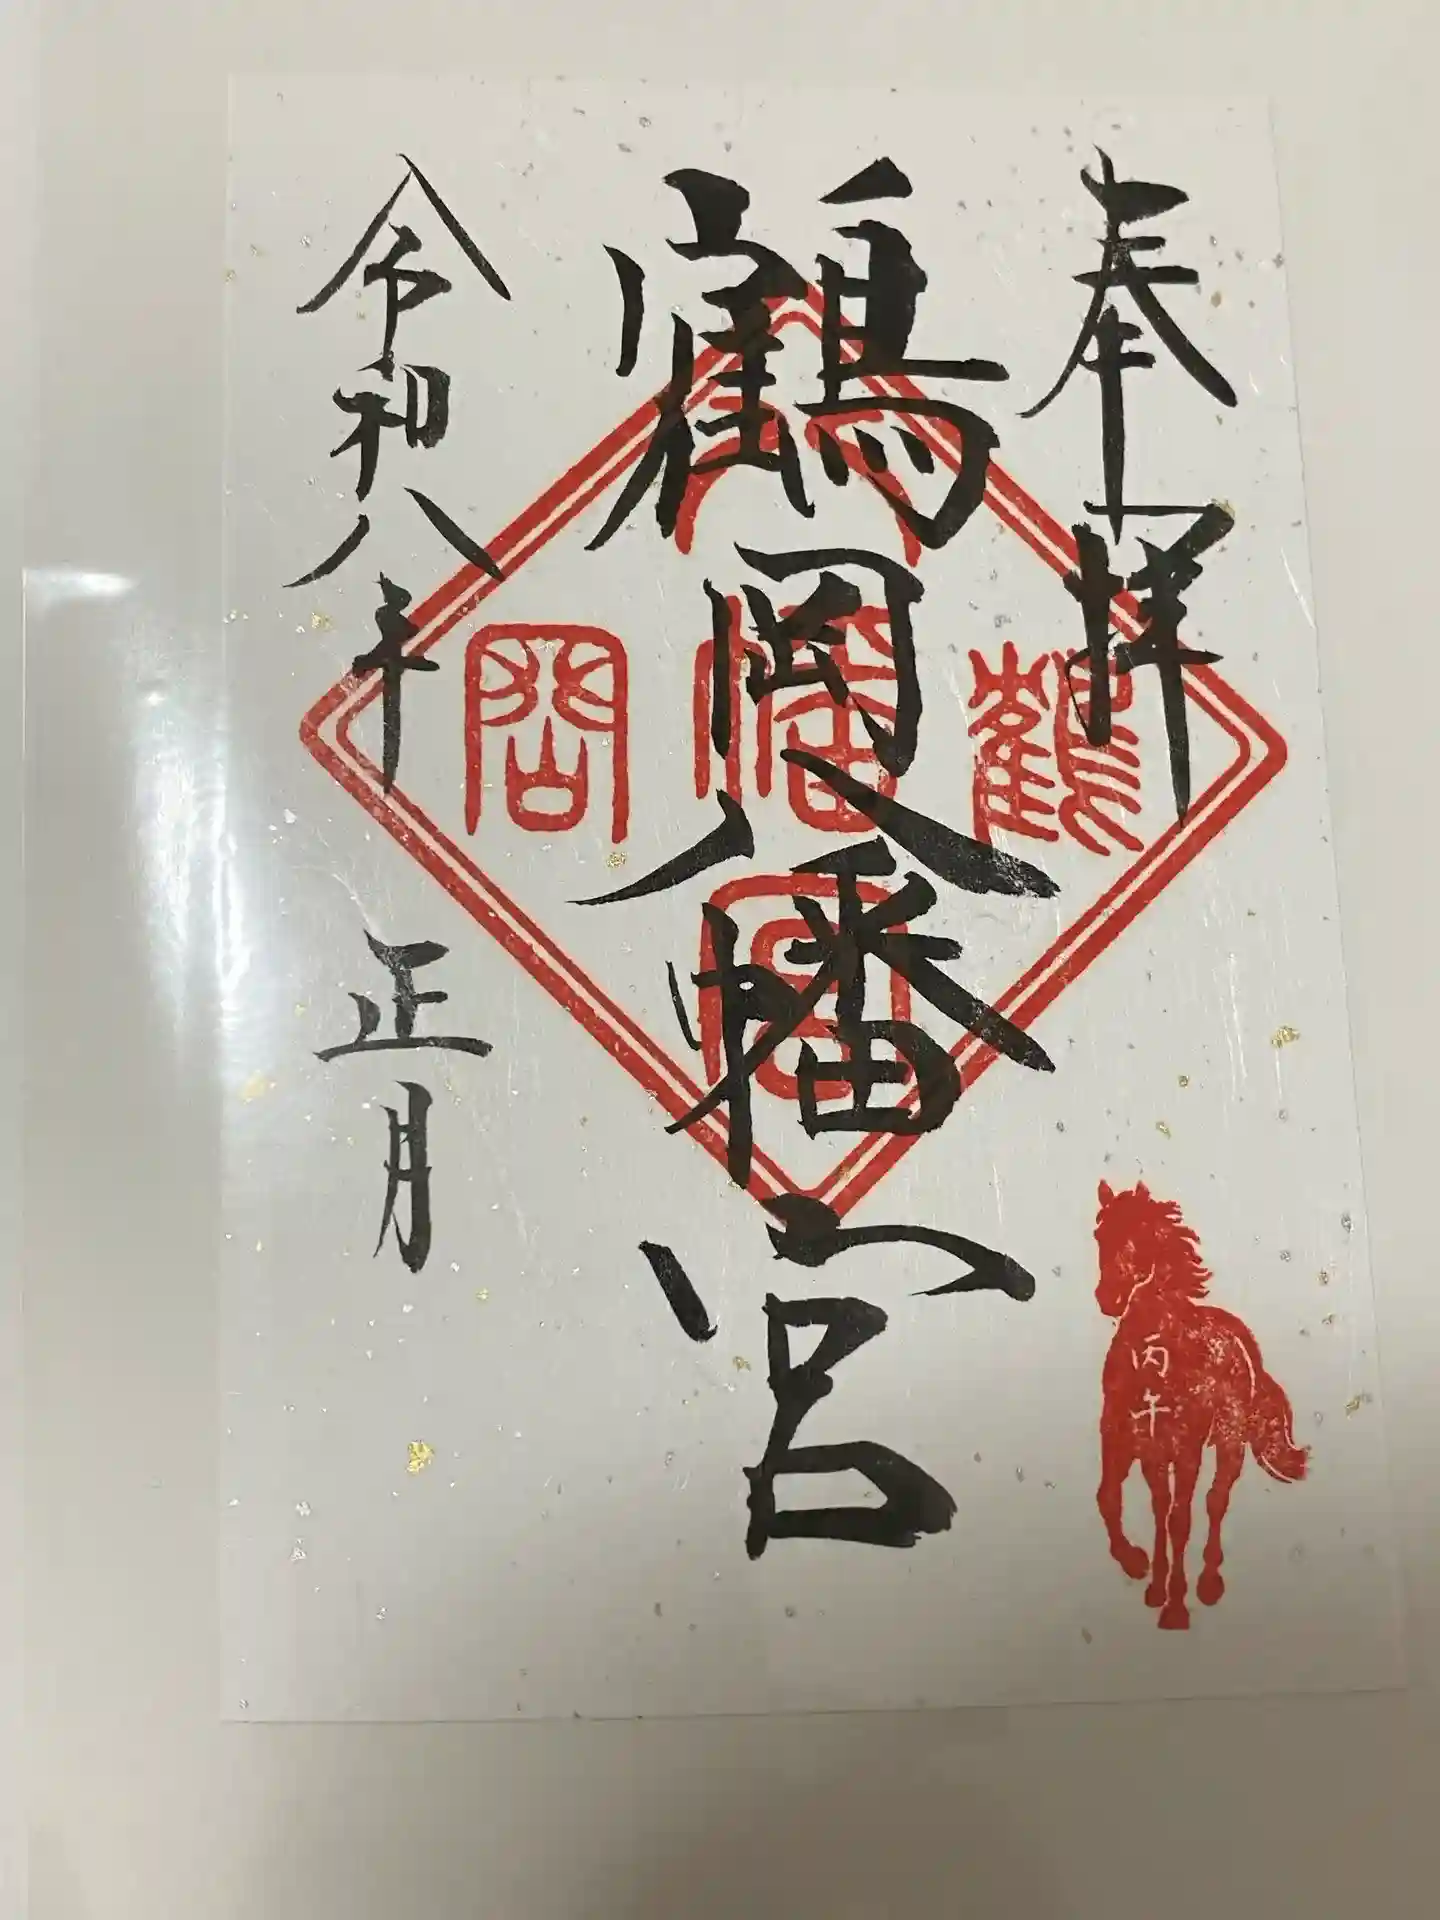 奉拝
鶴岡八幡宮
令和八年 正月
鶴
幡
岡
宮
丙午